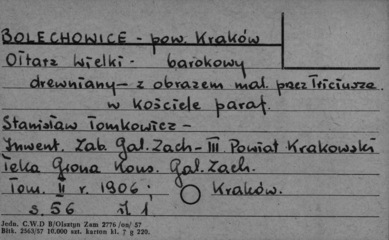 BOLECHOWICE - pow. Kraków
Ołtarz Wielki - barokowy
drewniany - z obrazem mal. przez Triciusza.
w kościele paraf.
Stanisław Tomkowicz -
Inwent. Zab. Gal. Zach - III Powiat Krakowski
Teka Grona Kons. Gal. Zach.
Tom. II r. 1906; Kraków.
s. 56 il 1.
Jedn. C.W.D B/Olsztyn Zam 2776 /on/ 57
Bltk. 2563/57 10,000 szt. karton kl. 7 g 220.